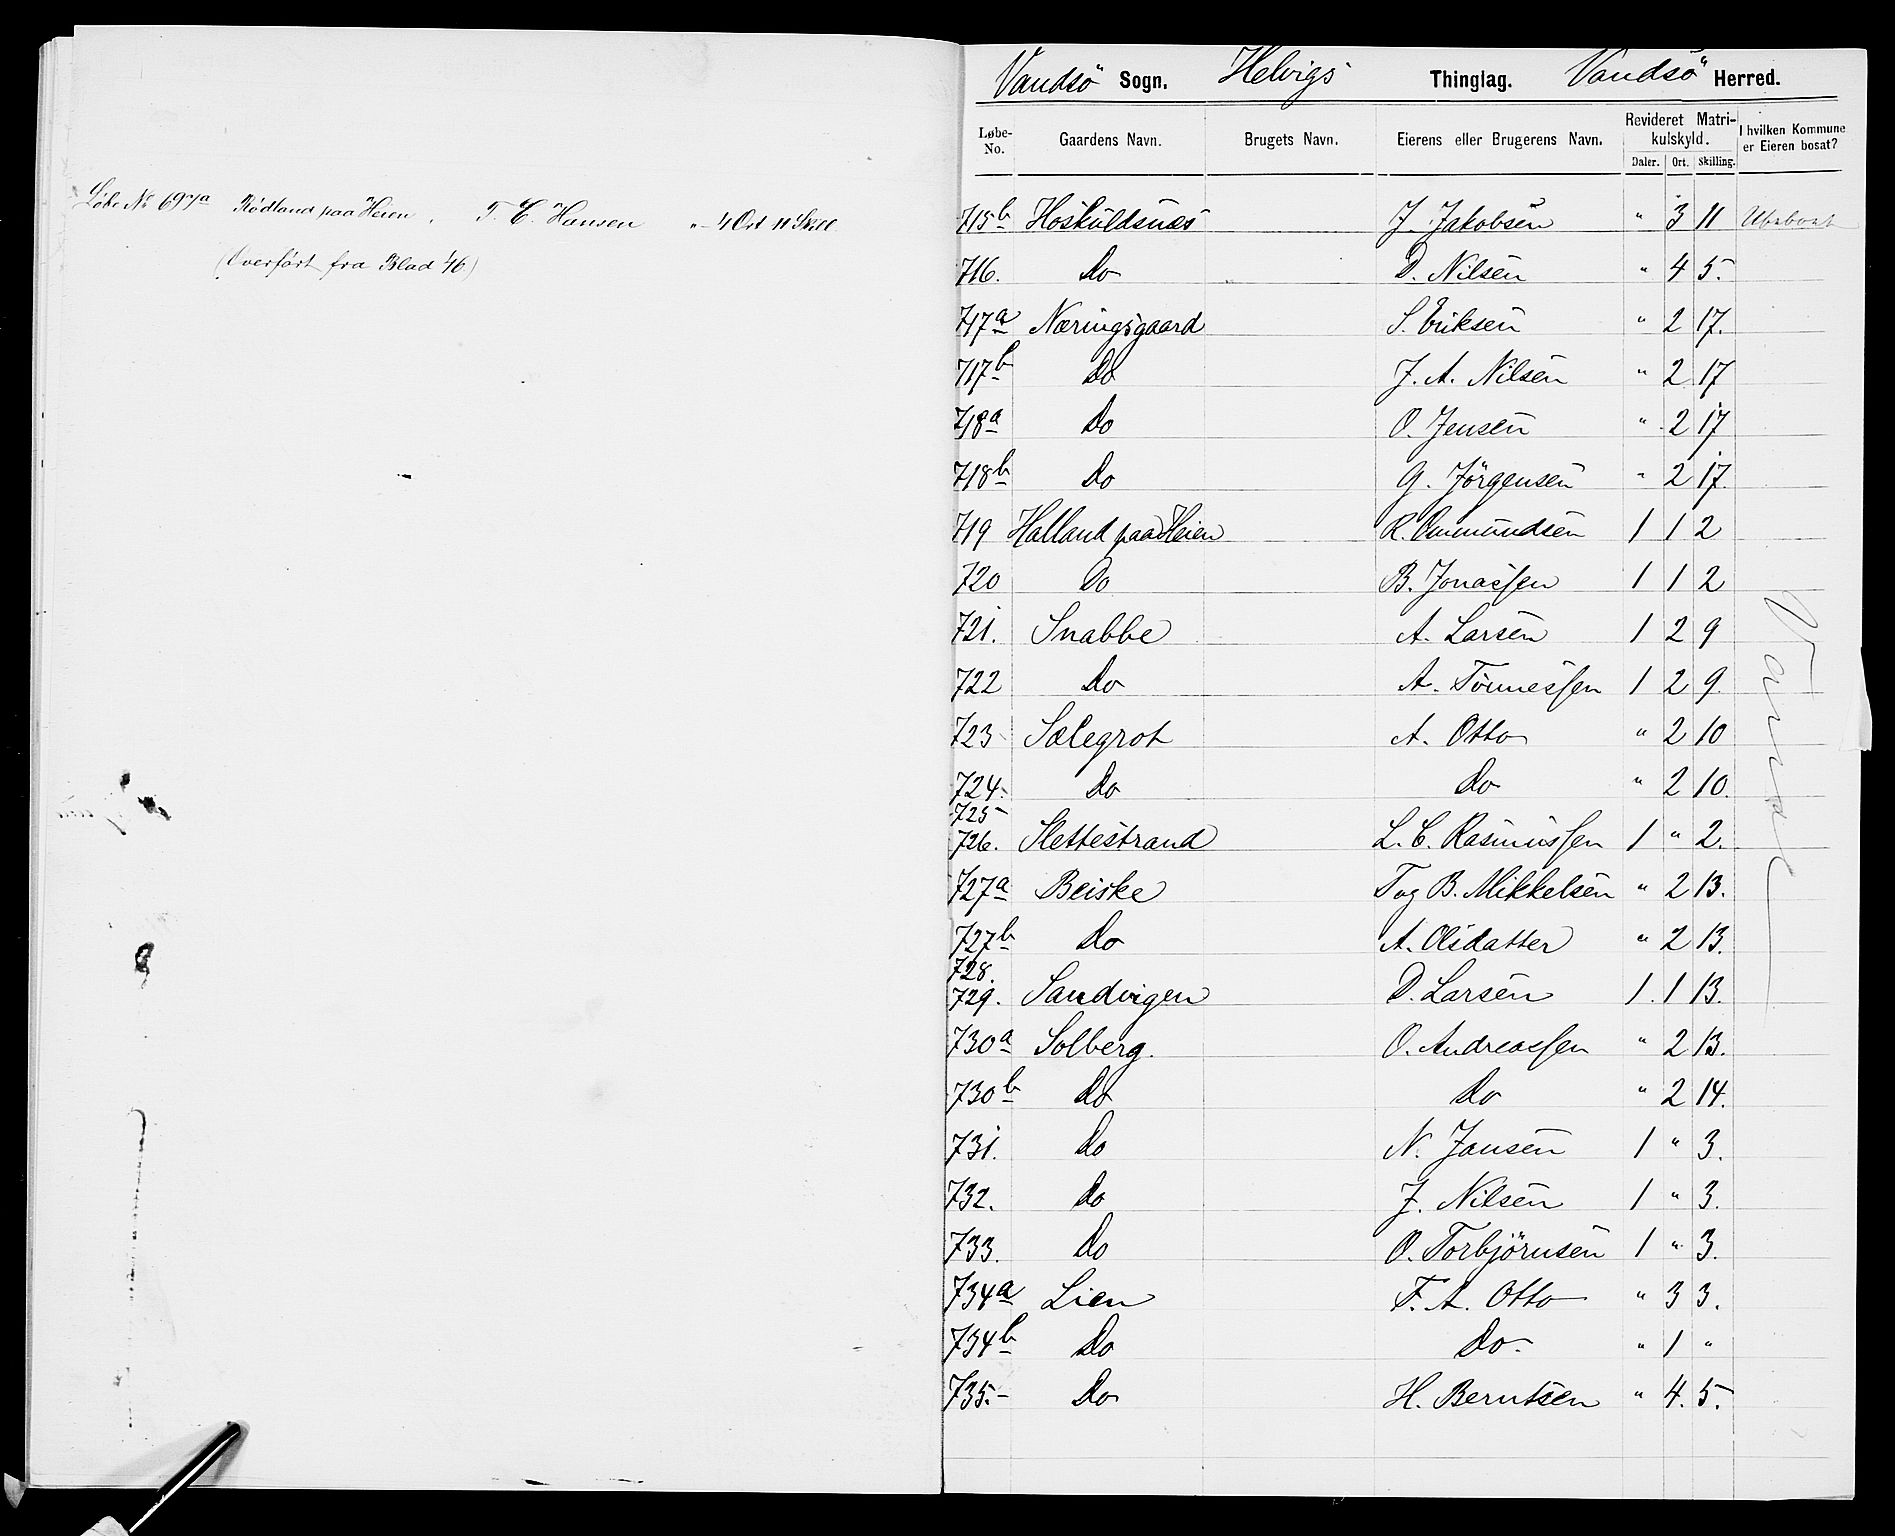 Löbe No 697a Rödland paa Heien. T. C. Hansen " - 4 Ort 11 Skill
(Overfört fra Blad 46)
Vandsö Sogn. Helvigs Thinglag. Vandsö Herred.
Løbe-No. Gaardens Navn. Brugets Navn. Eierens eller Brugerens Navn. Revideret Matrikulskyld. Daler. Ort. Skilling. I hvilken Kommune er Eieren bosat?
715b Höskuldsnæs J. Jakobsen " 3 11 Ubeboet
716. Do D. Nilsen " 4 5.
717a Næringsgaard S. Eriksen " 2 17.
717b Do J. A. Nilsen " 2 17
718a Do O. Jensen " 2 17
718b Do G. Jörgensen " 2 17.
719 Halland paa Heien R. Ommundsen 1 1 2
720 Do B. Jonassen 1 1 2
721. Snabbe A. Larsen 1 2 9
722 Do A. Tönnessen 1 2 9.
723 Sælegrot A. Otto " 2 10
724. Do Do " 2 10.
725
726. Slettestrand L. C. Rasmussen 1 " 2.
727a Beiske T og B. Mikkelsen " 2 13.
727b Do A. Olsdatter " 2 13.
728.
729. Sandvigen D. Larsen 1. 1 13.
730a Solberg. O. Andreassen " 2 13.
730b Do Do " 2 14.
731. Do N. Jansen 1 " 3.
732. Do J. Nilsen 1 " 3.
733. Do O. Torbjörnsen 1 " 3.
734a Lien F. A. Otto " 3 3.
734b Do Do. " 1 "
735. Do H. Berntsen " 4. 5.
Vanse